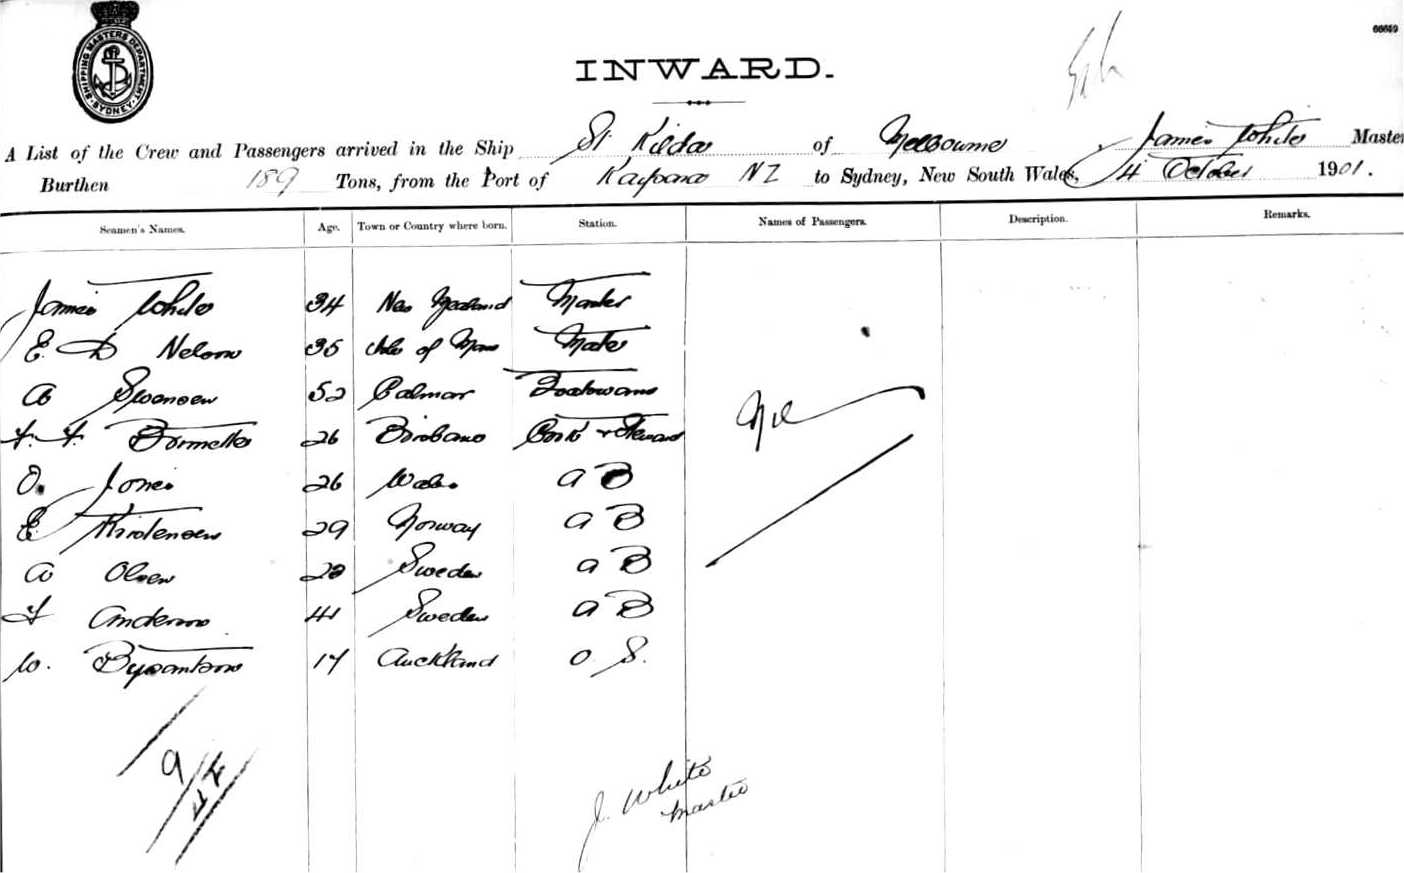 SHIPPING MASTERS DEPARTMENT SYDNEY
66649
INWARD.
A List of the Crew and Passengers arrived in the Ship St Kilda of Melbourne, James White Master
Burthen 189 Tons, from the Port of Kaipara NZ to Sydney, New South Wales, 4 October 1901.
Seamen's Names. Age. Town or Country where born. Station. Names of Passengers. Description. Remarks.
James White 34 New Zealand Master
E. D Nelson 35 Isle of Man Mate
A Swensen 52 Calmar Boatswain
26 Brisbane Cook & Steward
Nil
O. Jones 26 Wales A B
E. Kristensen 29 Norway A B
A Olsen Sweden A B
F Anderson 41 Sweden A B
W. 17 Auckland O. S.
9
J. White
Master